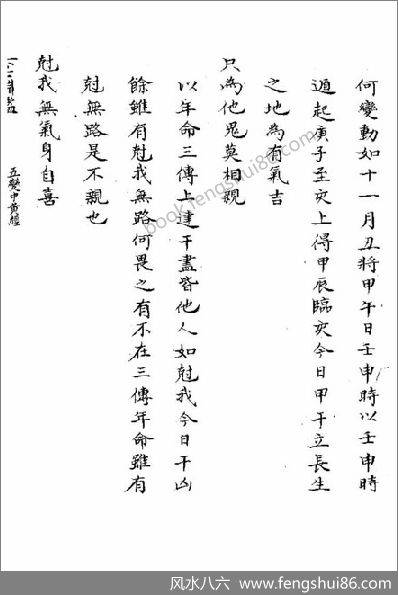 何變動如十一月丑將甲午日壬申時以壬申時
遁起庚子至亥上得甲辰臨亥今日甲干立長生
之地為有氣吉
只為他鬼莫相親
以年命三傳上達干盡皆他人如尅我今日干凶
餘雖有尅我無路何畏之有不在三傳年命雖有
尅無路是不親也
尅我無氣身自喜
五變中黃經
book.fengshui86.com
风水八六 | www.fengshui86.com